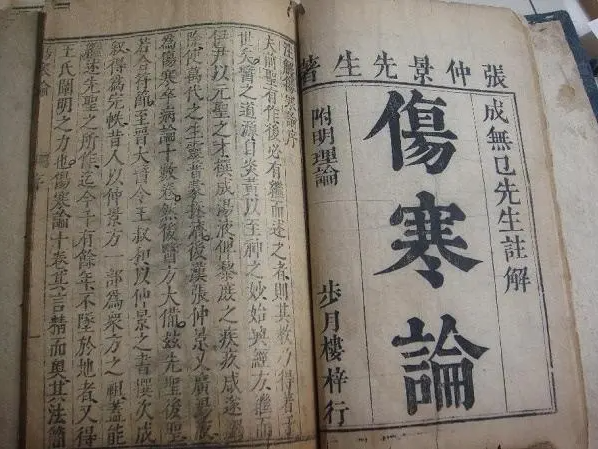 張仲景先生著
成無已先生註解
傷寒論
附明理論
步月樓梓行
註解傷寒論序
夫前聖有作後必有繼而述之者則其教乃得著于
世矣醫之道源自炎黃以至神之妙始興經方繼而
伊尹以元聖之才撰成湯液俾黎庶之疾疚咸遂蠲
除使萬代之生靈普蒙拯濟後漢張仲景又廣湯液
為傷寒卒病論十數卷然後醫方大備茲先聖後聖
若合符節至晉大醫令王叔和以仲景之書撰次成
叙得為完帙昔人以仲景方一部為衆方之祖蓋能
繼述先聖之所作迄今千有餘年不墜於地者又得
王氏闡明之力也傷寒論十卷其言精而奧其法簡
寒論